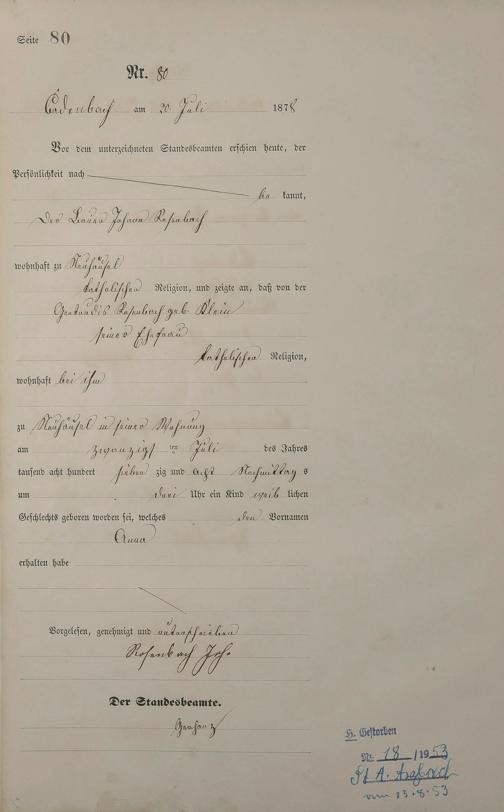 Seite 80
Nr. 80
Cadenbach am 20 Juli 1878
Vor dem unterzeichneten Standesbeamten erschien heute, der
Persönlichkeit nach
be kannt,
Der Bauer Johann Rosenbach
wohnhaft zu Neuhäusel
katholischer Religion, und zeigte an, daß von der
Gertrudis Rosenbach geb Klein
seiner Ehefrau
katholischer Religion,
wohnhaft bei ihm
zu Neuhäusel in seiner Wohnung
am zwanzigsten Juli des Jahres
tausend acht hundert sieben zig und acht Nachmittag s
um drei Uhr ein Kind weib lichen
Geschlechts geboren worden sei, welches den Vornamen
Anna
erhalten habe
Vorgelesen, genehmigt und unterschrieben
Rosenbach Joh.
Der Standesbeamte.
H. Gestorben
Nr. 18 /1953
St. A.
vom 13.8.53